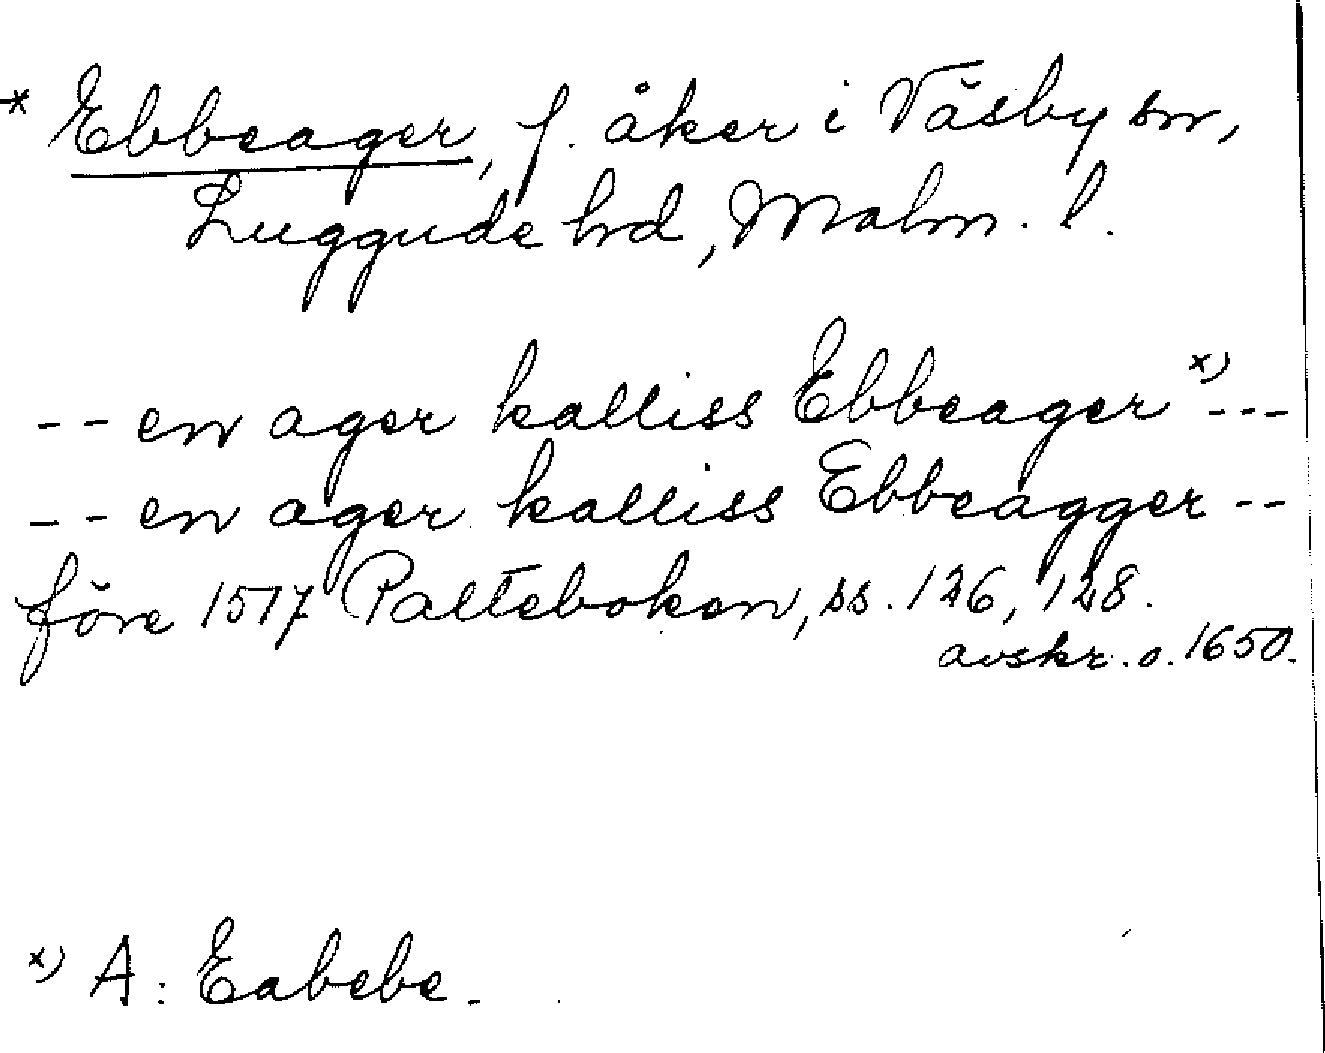 * Ebbeager, f. åker i Väsby sn,
Luggude hd, Malm. l.
-- en ager kalliss Ebbeager x) ---
-- en ager kalliss Ebbeagger --
före 1517 Palteboken, ss. 126, 128.
avskr. o. 1650.
x) A: Eabebe.